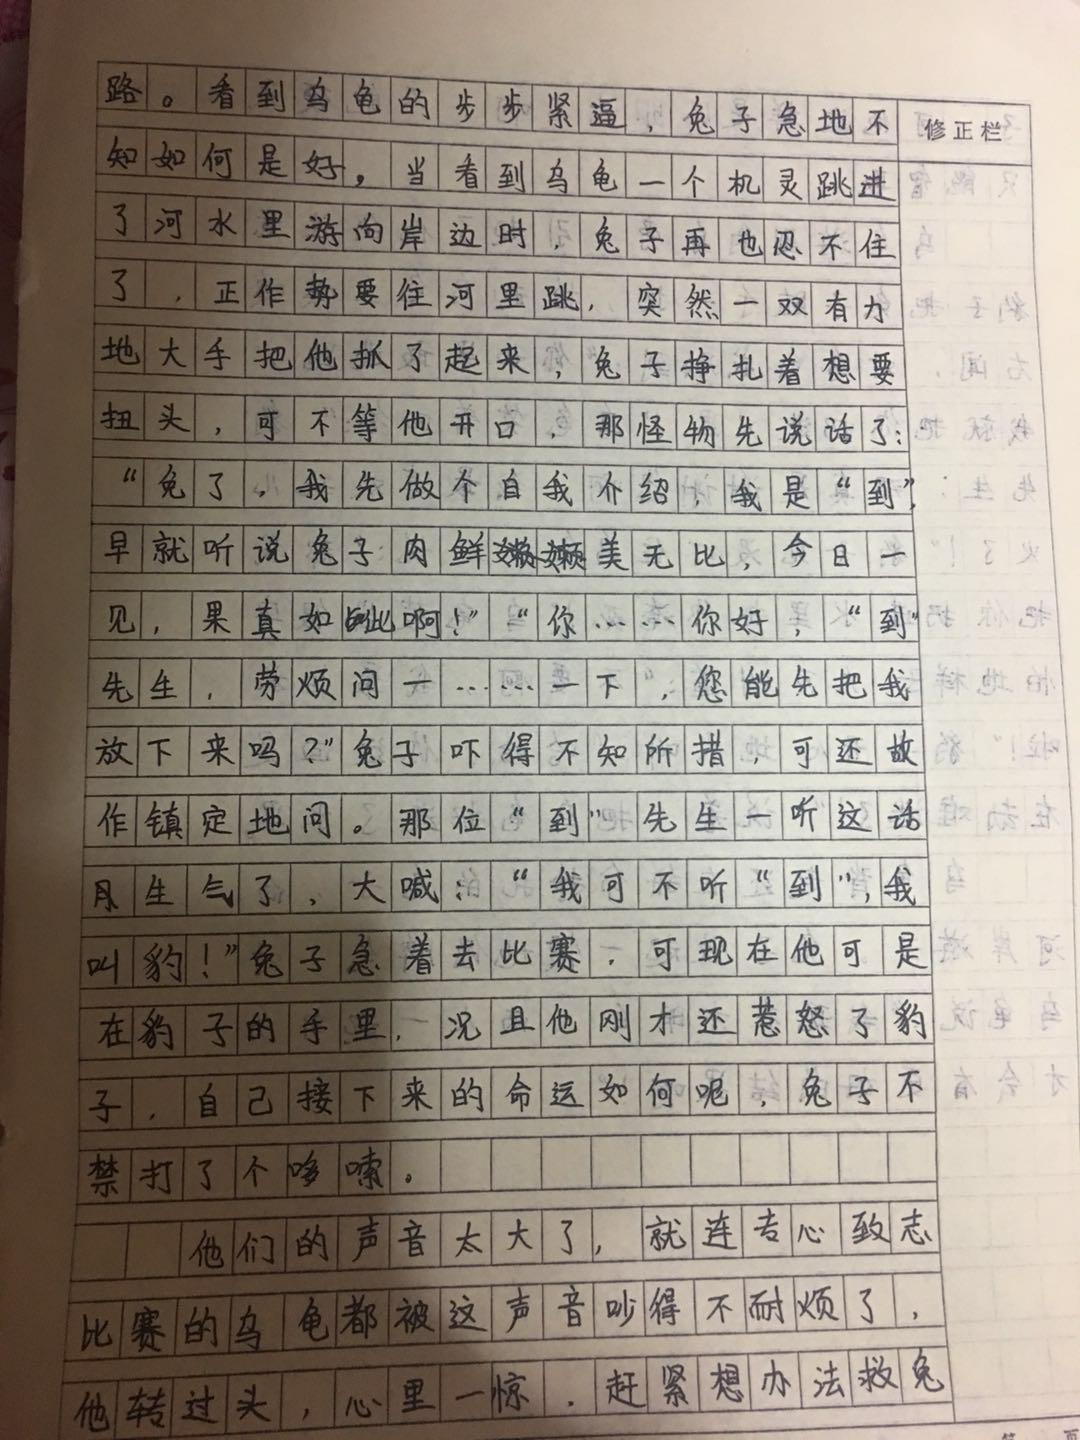 路。看到乌龟的步步紧逼，兔子急地不
修正栏
知如何是好。当看到乌龟一个机灵跳进
了河水里游向岸边时，兔子再也忍不住
了，正作势要往河里跳，突然一双有力
地大手把他抓了起来，兔子挣扎着想要
扭头，可不等他开口，那怪物先说话了：
“兔了，我先做个自我介绍，我是“到”，
早就听说兔子肉鲜嫩美无比，今日一
见，果真如此啊！”“你……你好，“到”
先生，劳烦问一……一下”，您能先把我
放下来吗？”兔子吓得不知所措，可还故
作镇定地问。那位“到”先生一听这话
月生气了，大喊：“我可不听“到”，我
叫豹！”兔子急着去比赛，可现在他可是
在豹子的手里，况且他刚才还惹怒了豹
子，自己接下来的命运如何呢，兔子不
禁打了个哆嗦。
他们的声音太大了，就连专心致志
比赛的乌龟都被这声音吵得不耐烦了，
他转过头，心里一惊，赶紧想办法救兔